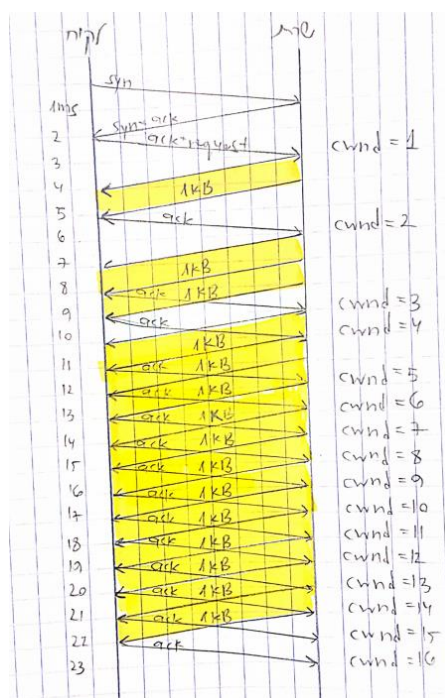 לקוח שרת
syn
1ms
syn+ack
2 ack+request cwnd = 1
3
4 1KB
5 ack cwnd = 2
6
7 1KB
8 ack 1KB cwnd = 3
9 ack cwnd = 4
10 1KB
11 ack 1KB cwnd = 5
12 ack 1KB cwnd = 6
13 ack 1KB cwnd = 7
14 ack 1KB cwnd = 8
15 ack 1KB cwnd = 9
16 ack 1KB cwnd = 10
17 ack 1KB cwnd = 11
18 ack 1KB cwnd = 12
19 ack 1KB cwnd = 13
20 ack 1KB cwnd = 14
21 ack 1KB cwnd = 15
22 ack cwnd = 16
23